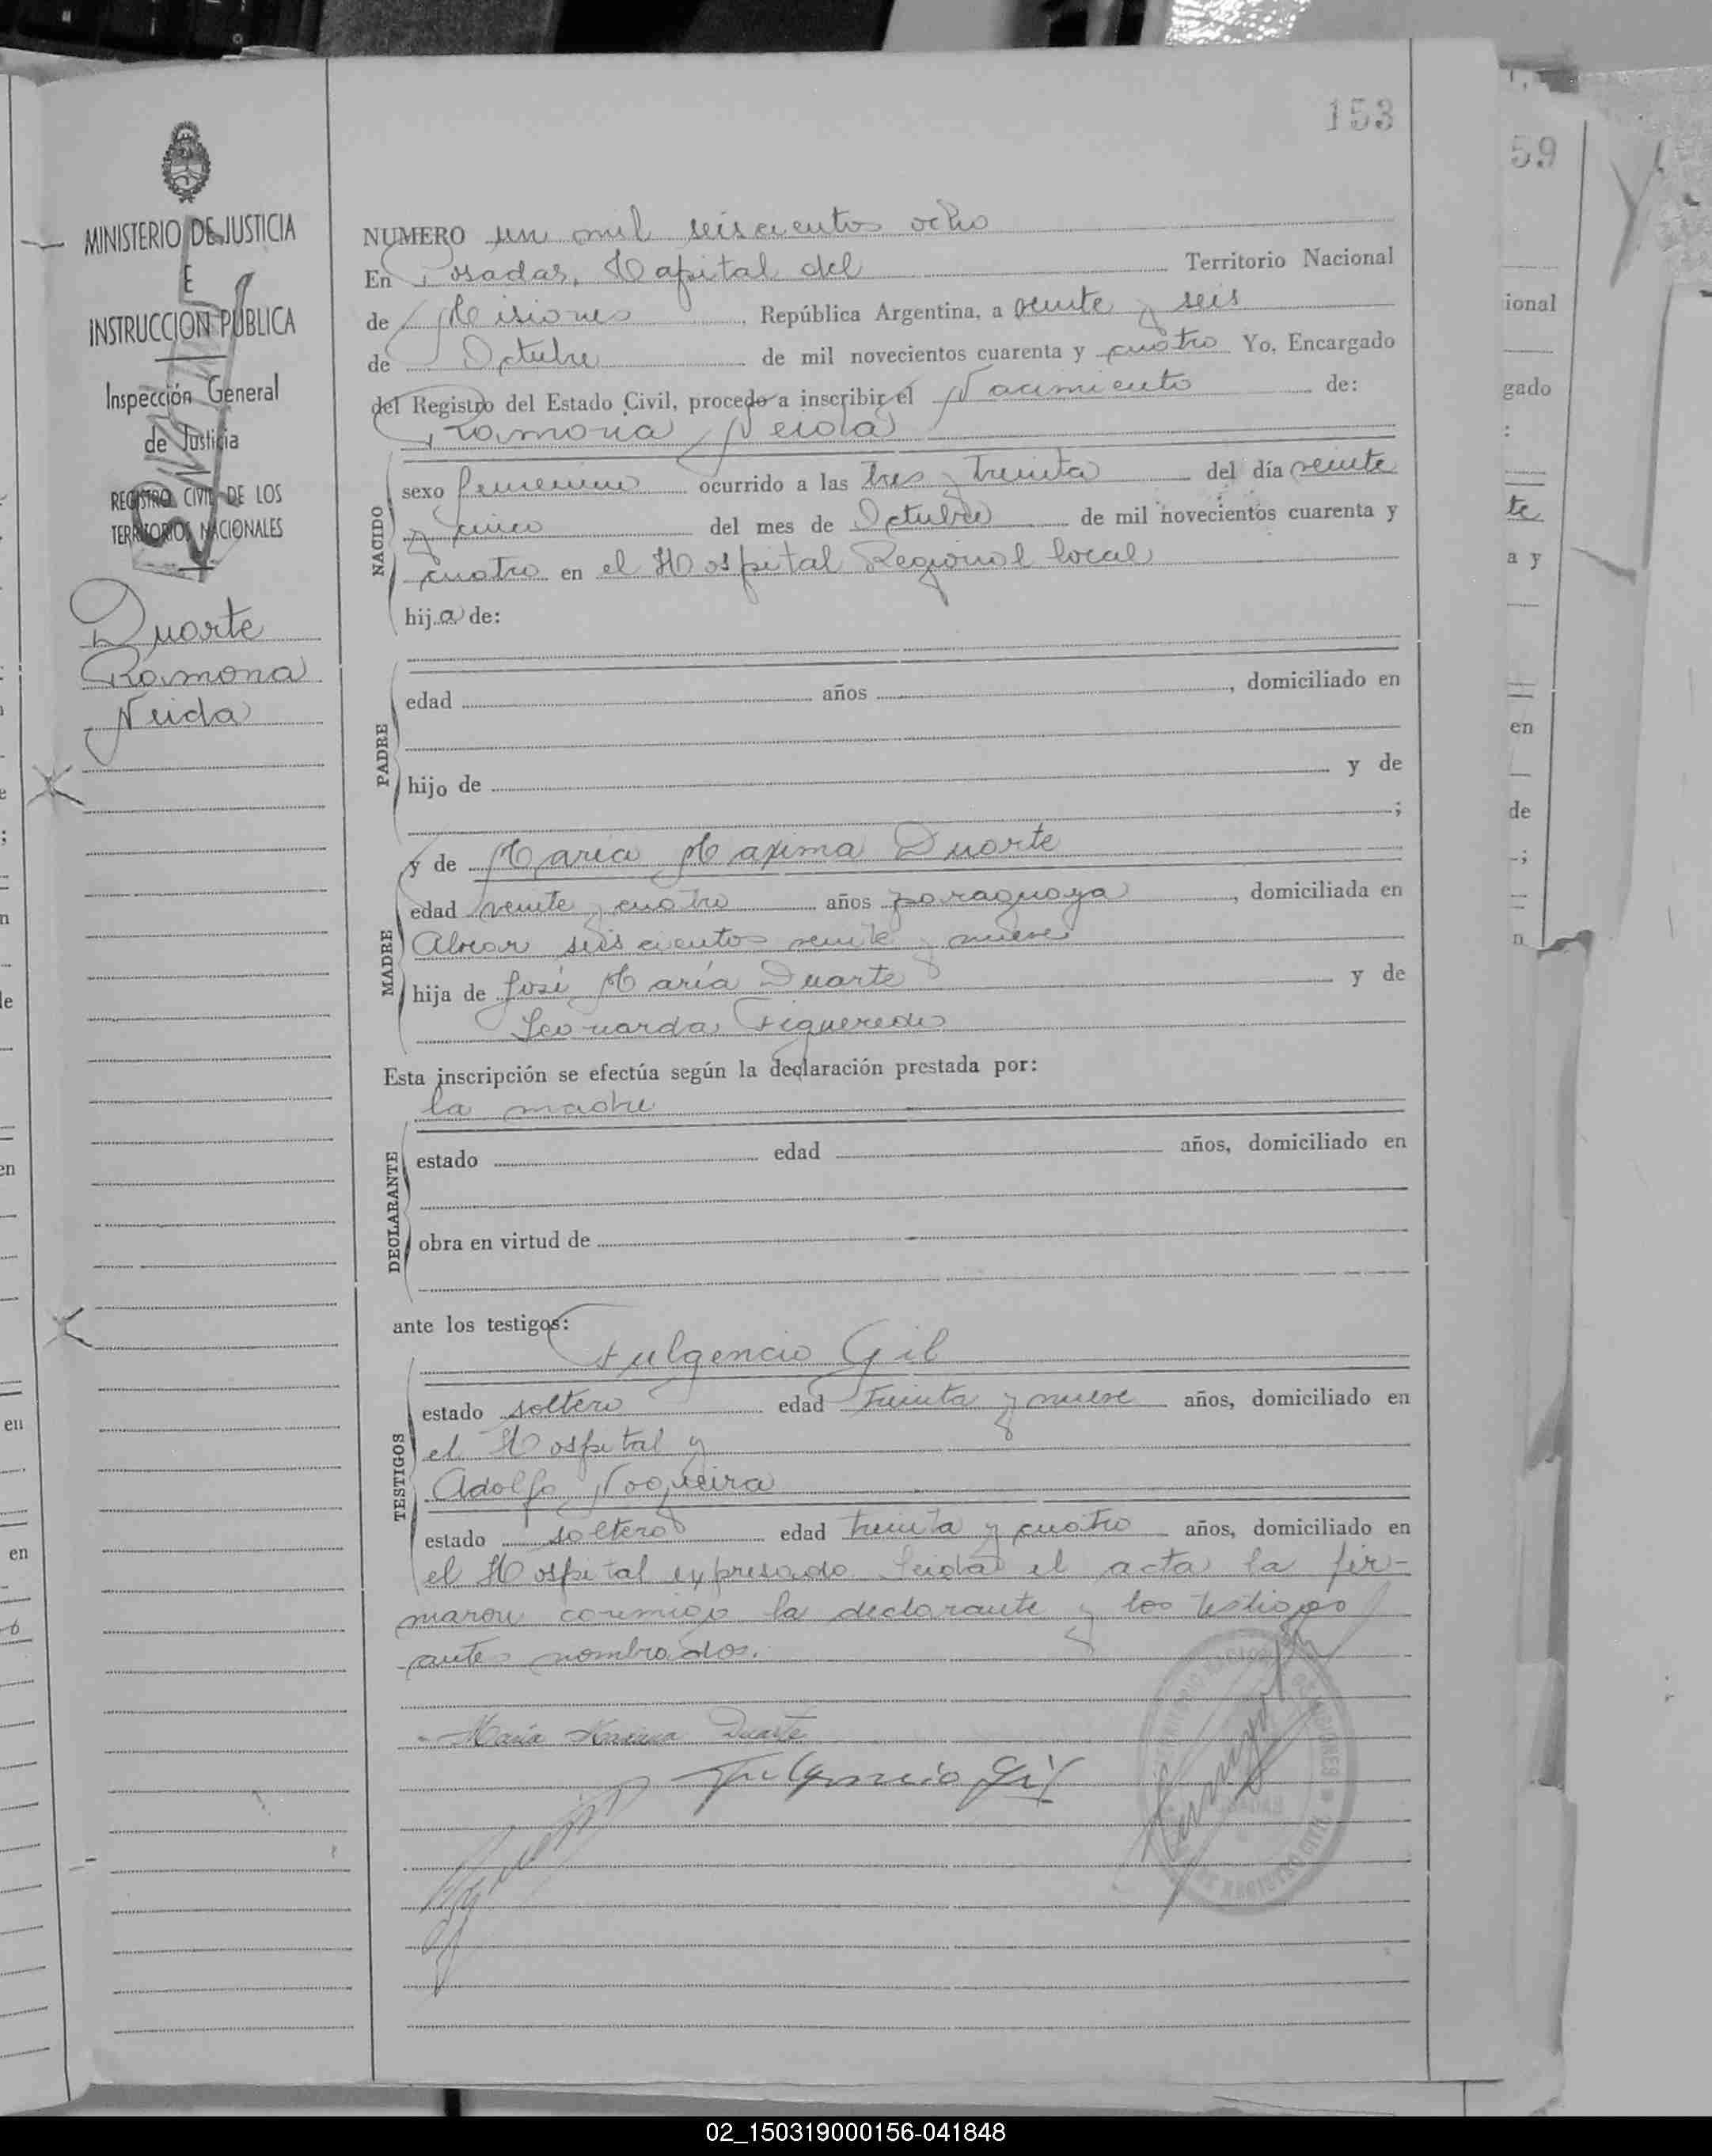 153
59
MINISTERIO DE JUSTICIA
E
INSTRUCCION PUBLICA
Inspección General
de Justicia
REGISTRO CIVIL DE LOS
TERRITORIOS NACIONALES
Duarte
Ramona
Neida
NUMERO un mil seiscientos ocho
En Posadas, Capital del Territorio Nacional
de Misiones, República Argentina, a veinte y seis
de Octubre de mil novecientos cuarenta y cuatro Yo, Encargado
del Registro del Estado Civil, procedo a inscribir el Nacimiento de:
Ramona Neida
NACIDO
sexo femenino ocurrido a las tres y treinta del día veinte
y cinco del mes de Octubre de mil novecientos cuarenta y
cuatro en el Hospital Regional local
hija de:
PADRE
edad años , domiciliado en
hijo de y de
;
y de María Maxima Duarte
MADRE
edad veinte y cuatro años paraguaya, domiciliada en
Alvear seiscientos veinte y nueve
hija de José María Duarte y de
Leonarda Figueredo
Esta inscripción se efectúa según la declaración prestada por:
la madre
DECLARANTE
estado edad años, domiciliado en
obra en virtud de
ante los testigos:
Fulgencio Gil
TESTIGOS
estado soltero edad treinta y nueve años, domiciliado en
el Hospital y
Adolfo Nogueira
estado soltero edad treinta y cuatro años, domiciliado en
el Hospital expresado Leida el acta la fir-
maron conmigo la declarante y los testigos
antes nombrados.
María Maxima Duarte
Fulgencio Gil
ional
gado
:
te
a y
en
de
02_150319000156-041848